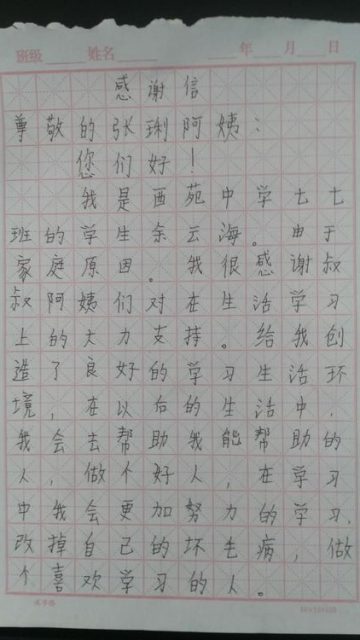 班级 姓名 年 月 日
感谢信
尊敬的张琍阿姨：
您们好！
我是西苑中学七七
班的学生余云海。由于
家庭原因。我很感谢叔
叔阿姨们对在生活学习
上的大力支持。给我创
造了良好的学习生活环
境，在以后的生活中，
我会去帮助我能帮助的
人，做个好人，在学习
中我会更加努力的学习，
改掉自己的坏毛病，做
个喜欢学习的人。